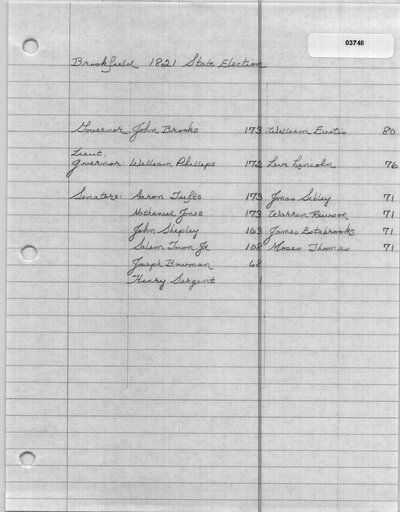 03748
Brookfield 1821 State Election
Governor: John Brooks 173 William Eustis 80
Lieut.
Governor: William Phillips 172 Levi Lincoln 76
Senators: Aaron Tufts 173 Jonas Sibley 71
Nathaniel Jones 173 Warren Rawson 71
John Shepley 163 James Estabrooks 71
Salem Town Jr 108 Moses Thomas 71
Joseph Bowman 68
Henry Sargent 1